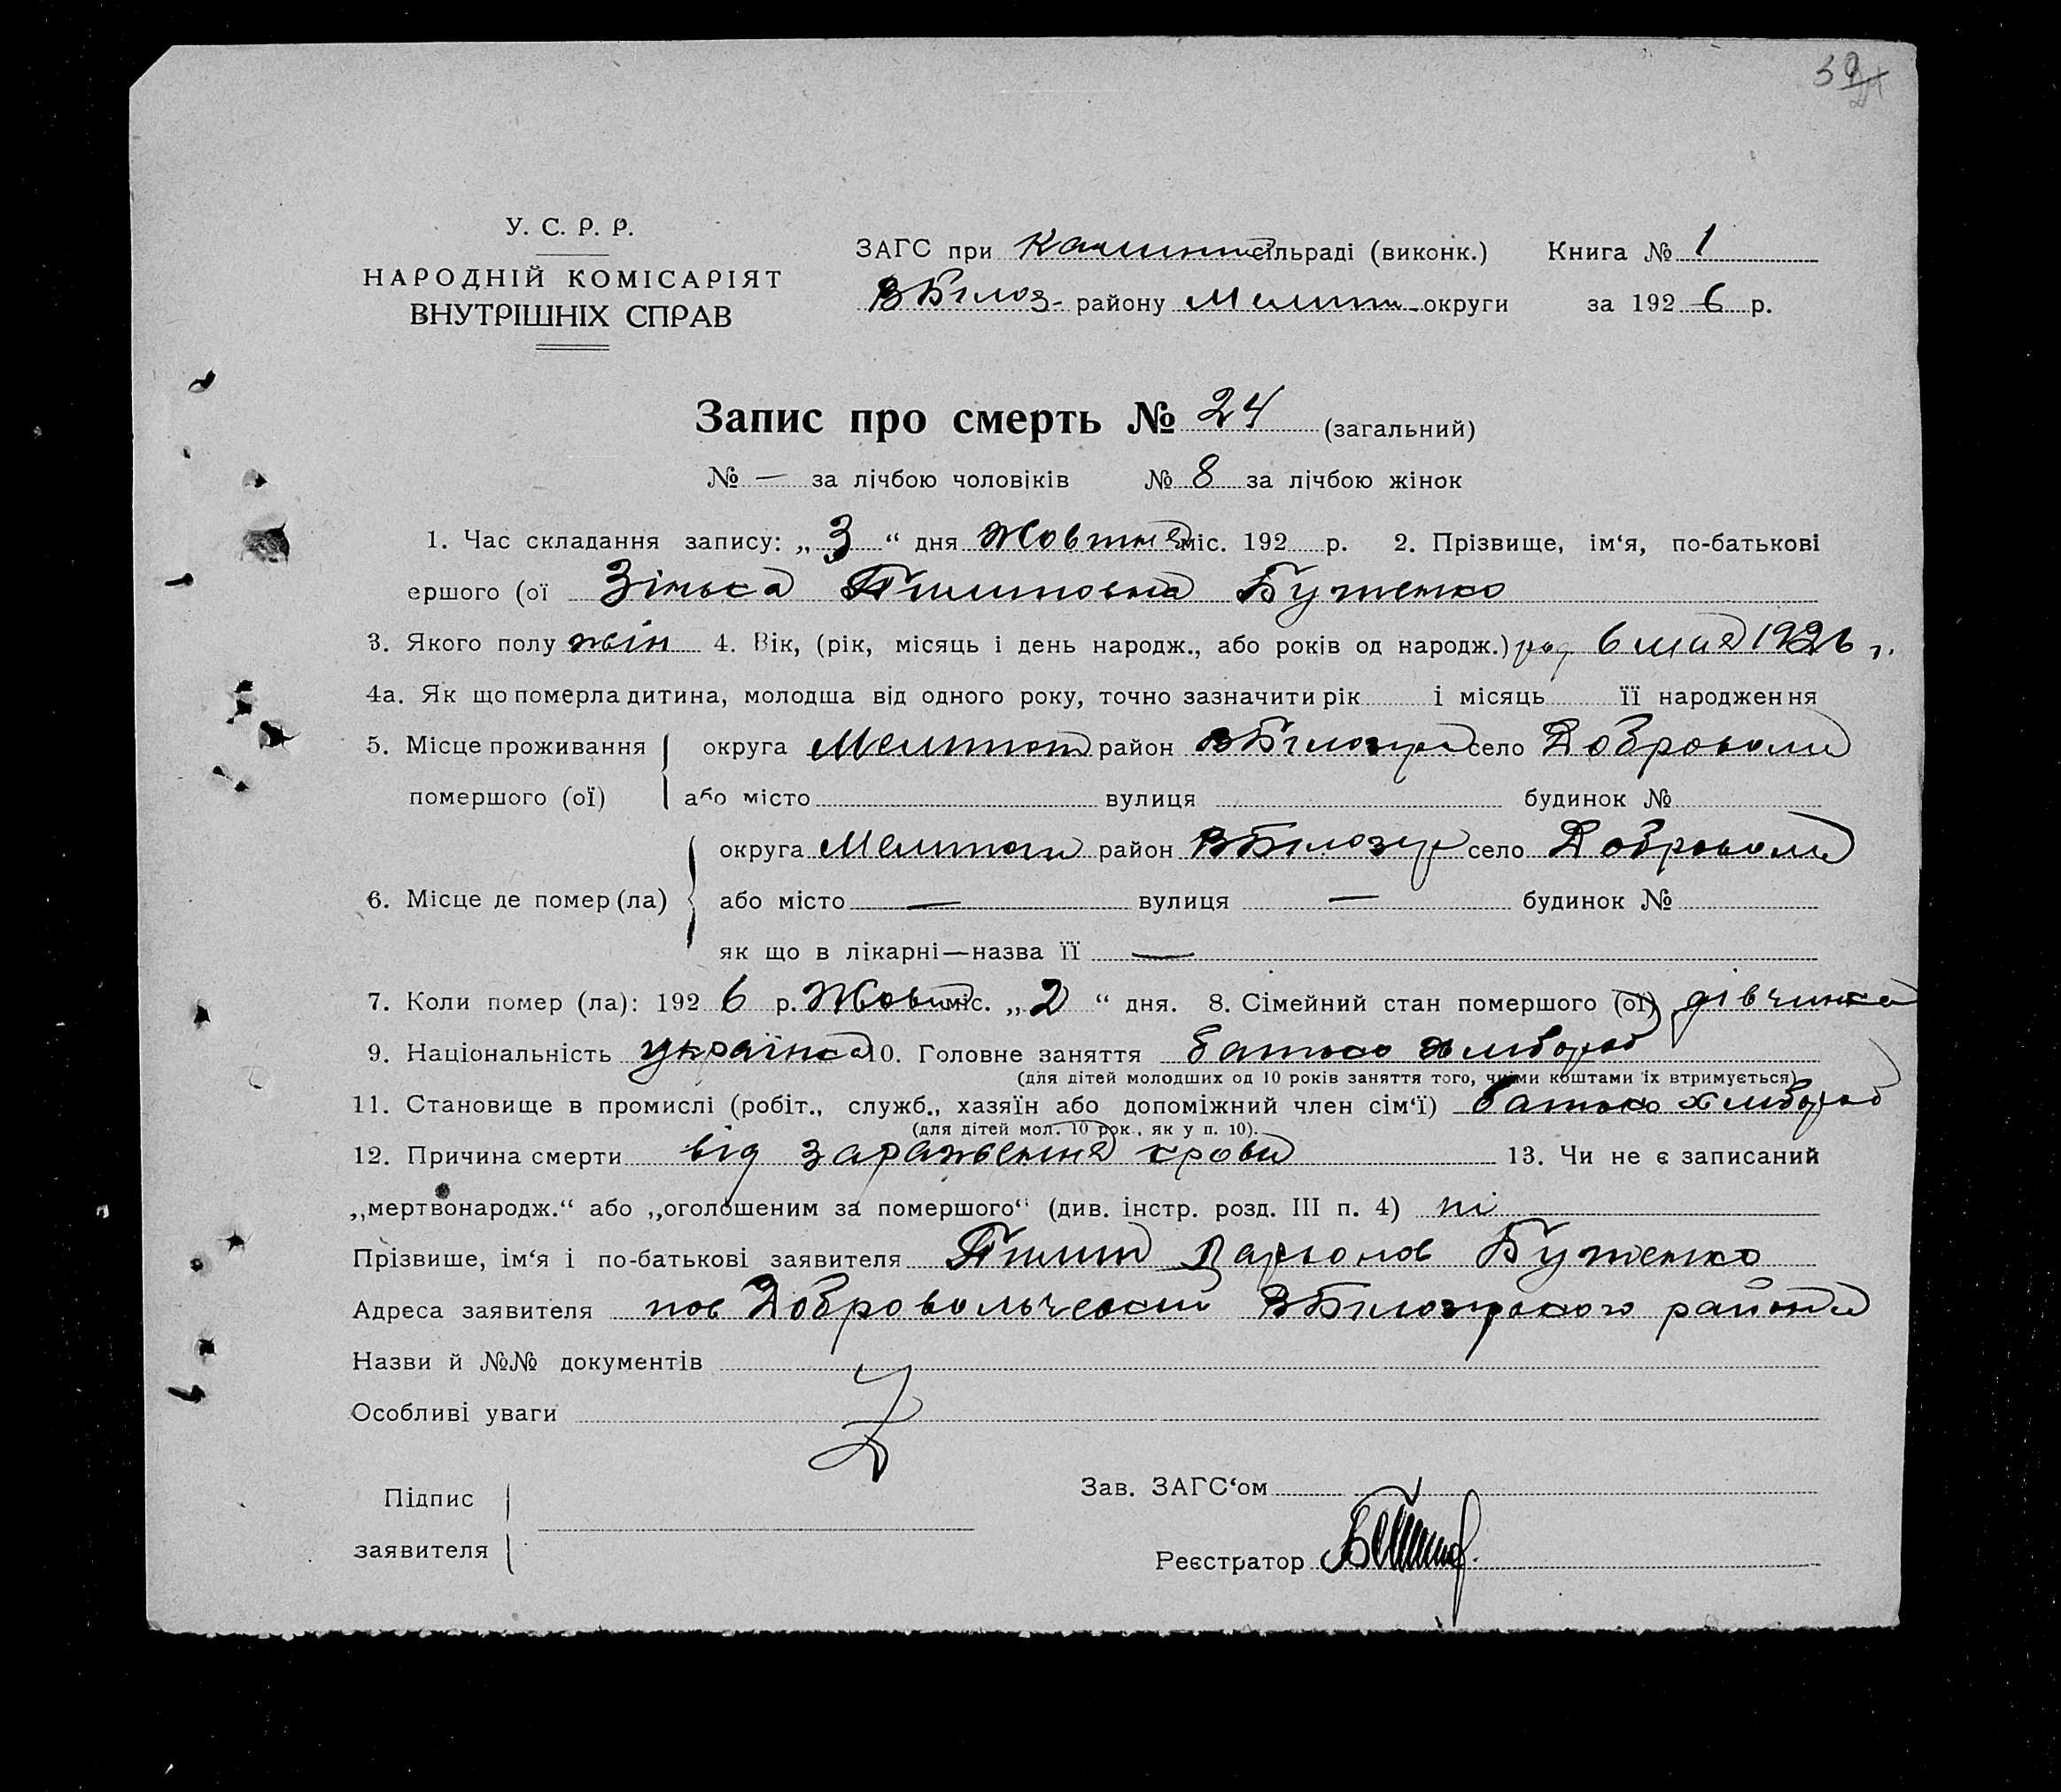 39
У. С. Р. Р.
НАРОДНІЙ КОМІСАРІЯТ
ВНУТРІШНІХ СПРАВ
ЗАГС при Калинин сільраді (виконк.) Книга № 1
ВБілоз- району Мелит. округи за 1926 р.
Запис про смерть № 24 (загальний)
№ — за лічбою чоловіків № 8 за лічбою жінок
1. Час складання запису: „3“ дня Жовтня міс. 192 р. 2. Прізвище, ім‘я, по-батькові
ершого (ої Зінька Пилиповна Бутенко
3. Якого полу жін 4. Вік, (рік, місяць і день народж., або років од народж.) 6 мая 1926 г.
4а. Як що померла дитина, молодша від одного року, точно зазначити рік і місяць її народження
5. Місце проживання округа Мелитоп район ВБілозер село Доброволи
помершого (ої) або місто вулиця будинок №
округа Мелитоп район ВБілозер село Доброволи
6. Місце де помер (ла) або місто — вулиця — будинок №
як що в лікарні—назва її —
7. Коли помер (ла): 1926 р. Жовт міс. „2“ дня. 8. Сімейний стан помершого (ої) дівчинка
9. Національність українка 10. Головне заняття батько хлибороб
(для дітей молодших од 10 років заняття того, чиїми коштами їх втримується)
11. Становище в промислі (робіт., служб., хазяїн або допоміжний член сім‘ї) батько хлибороб
(для дітей мол. 10 рок., як у п. 10).
12. Причина смерти від зараження крови 13. Чи не є записаний
„мертвонародж.“ або „оголошеним за помершого“ (див. інстр. розд. III п. 4) ні
Прізвише, ім‘я і по-батькові заявителя Пилип Ларіонов Бутенко
Адреса заявителя пос Добровольческий ВБілозерского района
Назви й №№ документів
Особливі уваги
Зав. ЗАГС‘ом
Підпис
заявителя
Реєстратор